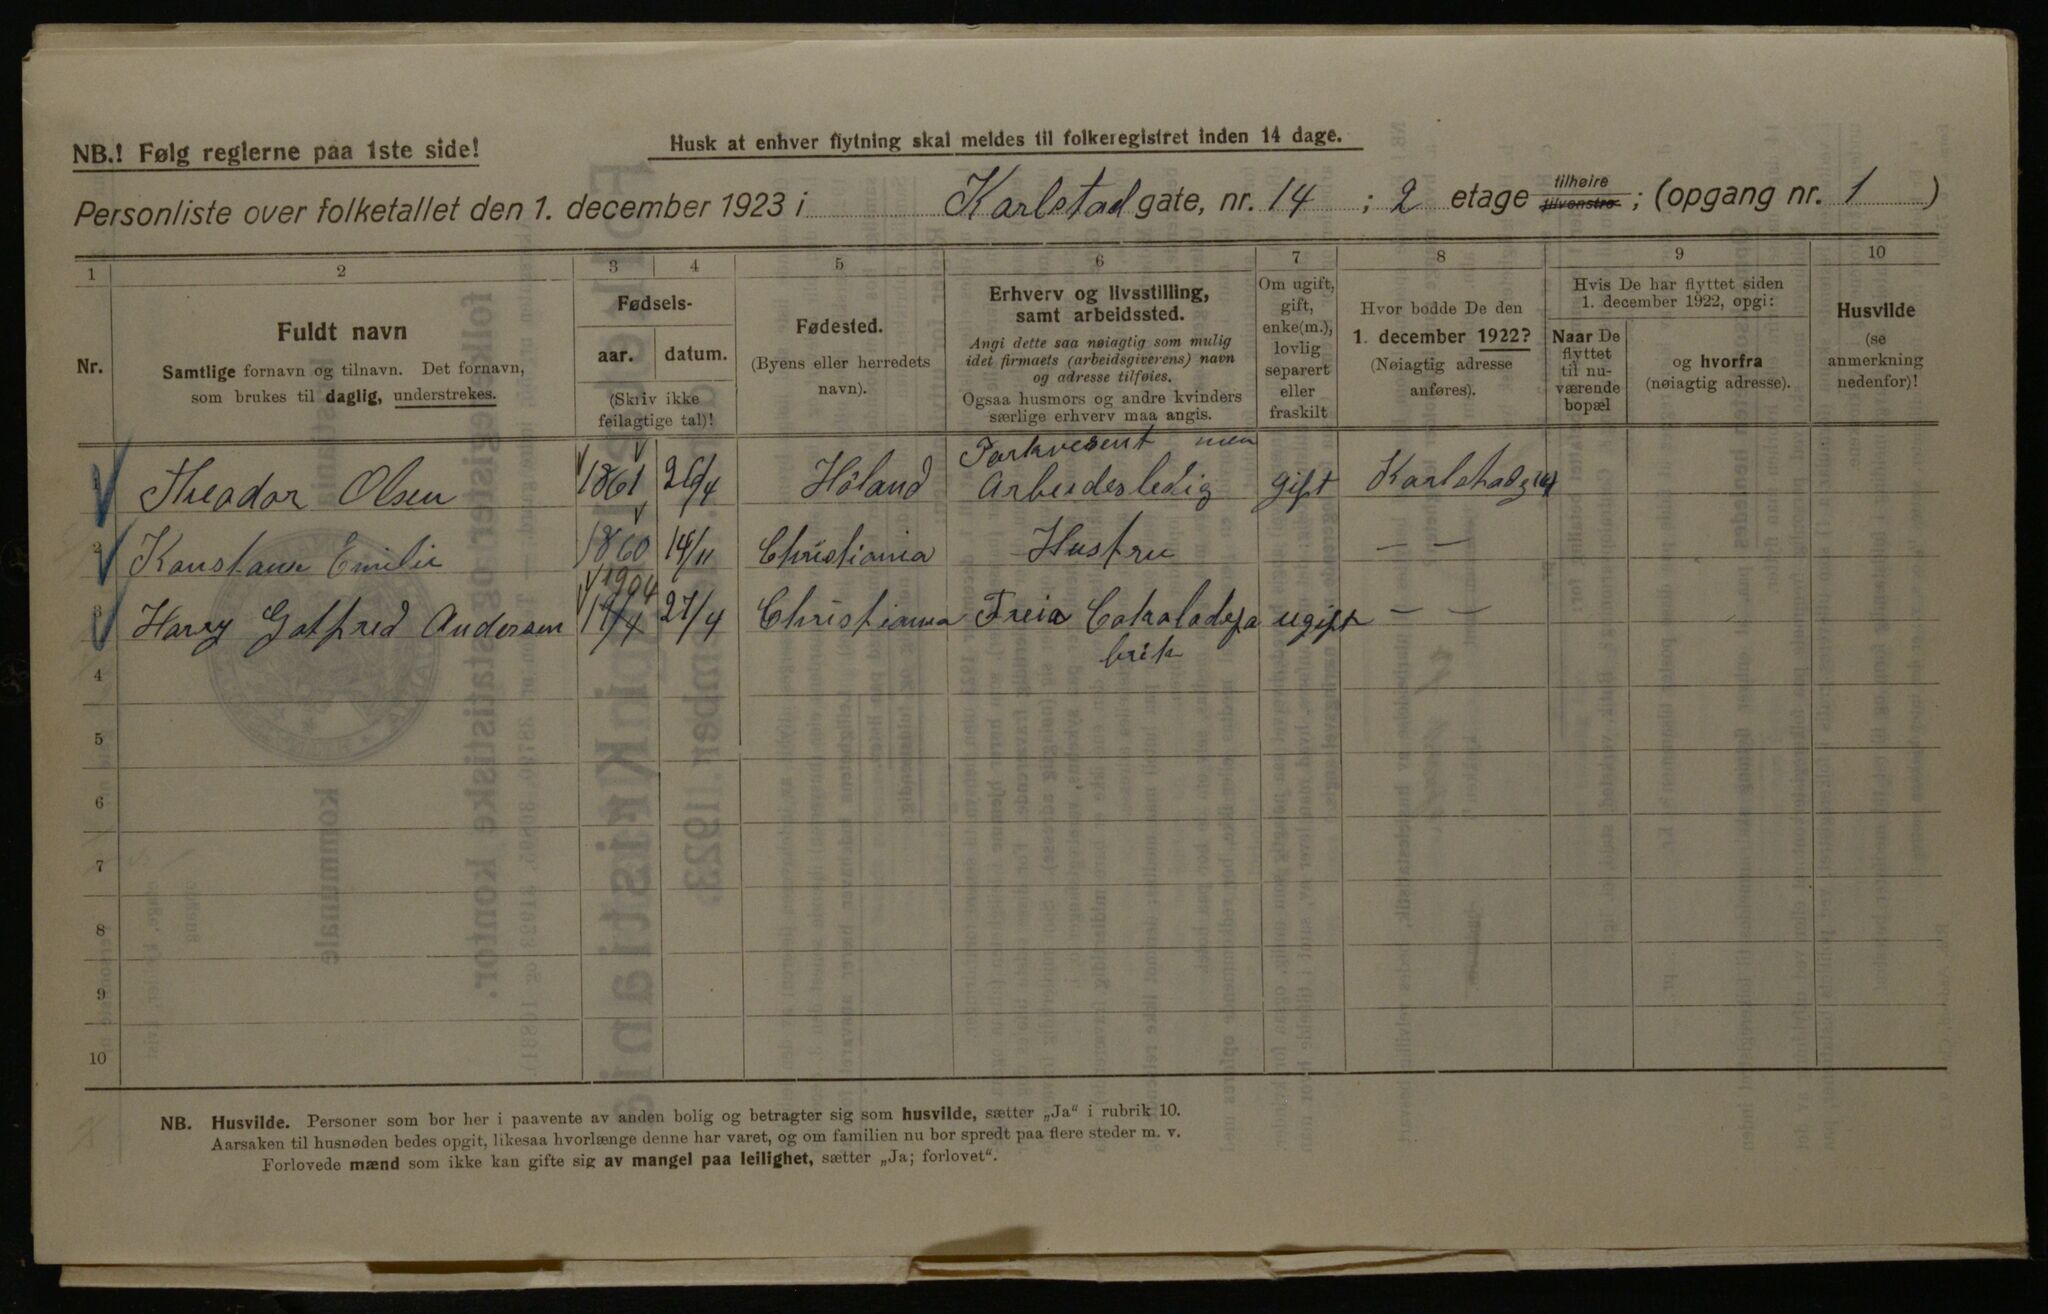 NB.! Følg reglerne paa 1ste side!
Husk at enhver flytning skal meldes til folkeregistret inden 14 dage.
Personliste over folketallet den 1. december 1923 i Karlstad gate, nr. 14 ; 2 etage tilhøire tilvenstre ; (opgang nr. 1 )
1 2 3 4 5 6 7 8 9 10
Nr.
Fuldt navn
Samtlige fornavn og tilnavn. Det fornavn,
som brukes til daglig, understrekes.
Fødsels-
aar. datum.
(Skriv ikke
feilagtige tal)!
Fødested.
(Byens eller herredets
navn).
Erhverv og livsstilling,
samt arbeidssted.
Angi dette saa nøiagtig som mulig
idet firmaets (arbeidsgiverens) navn
og adresse tilføies.
Ogsaa husmors og andre kvinders
særlige erhverv maa angis.
Om ugift,
gift,
enke(m.),
lovlig
separert
eller
fraskilt
Hvor bodde De den
1. december 1922?
(Nøiagtig adresse
anføres).
Hvis De har flyttet siden
1. december 1922, opgi:
Naar De
flyttet
til nu-
værende
bopæl
og hvorfra
(nøiagtig adresse).
Husvilde
(se
anmerkning
nedenfor)!
1 Theodor Olsen 1861 26/4 Höland Parkvesent men
Arbeidesledig gift
2 Konstanse Emilie 1860 14/11 Christiania Hustru — —
3 Harry Gotfred Andersen 1904 27/4 Christiania Freia Cokoladefa ugift — —
brik
4
5
6
7
8
9
10
NB. Husvilde. Personer som bor her i paavente av anden bolig og betragter sig som husvilde, sætter „Ja" i rubrik 10.
Aarsaken til husnøden bedes opgit, likesaa hvorlænge denne har varet, og om familien nu bor spredt paa flere steder m. v.
Forlovede mænd som ikke kan gifte sig av mangel paa leilighet, sætter „Ja; forlovet".